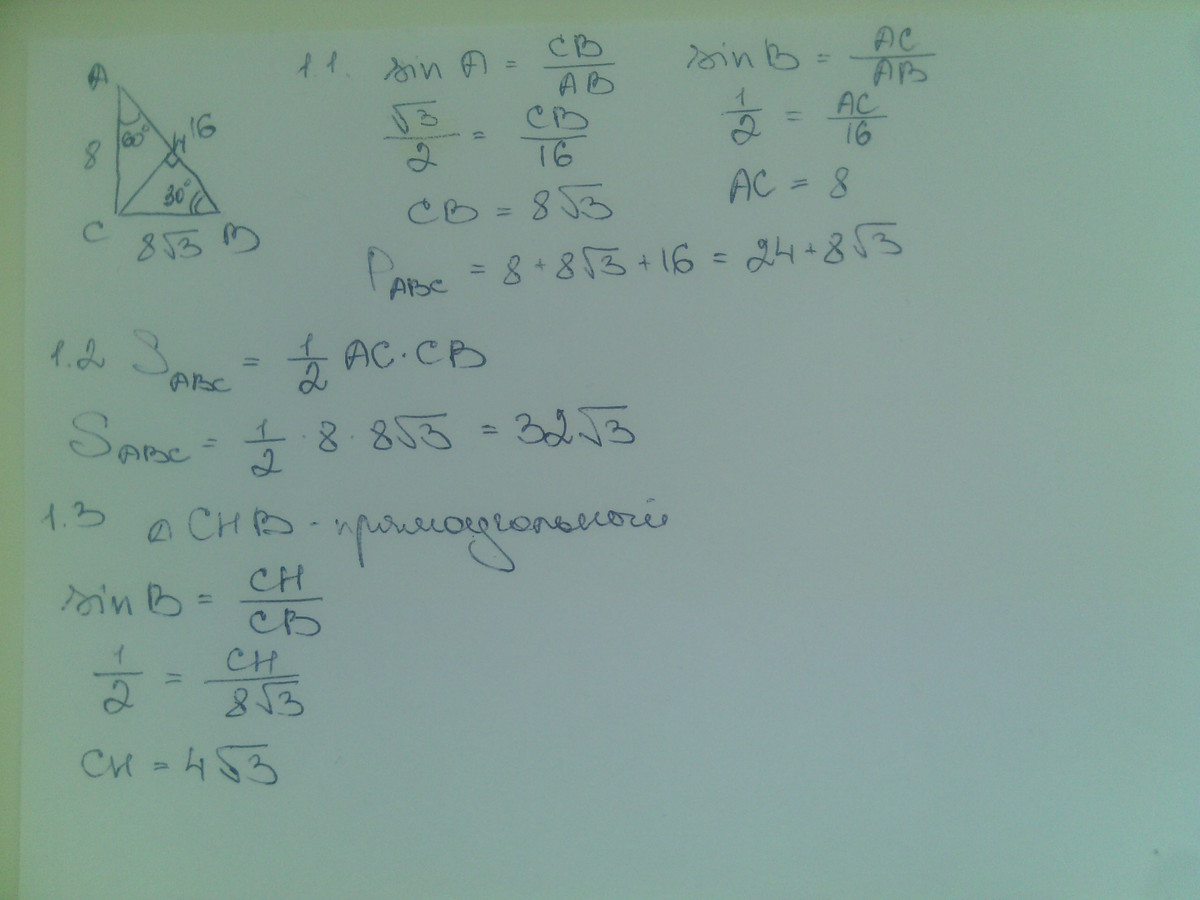 A
60°
16
H
8
30°
C
8√3
B
1.1. sin A = CB/AB
sin B = AC/AB
√3/2 = CB/16
1/2 = AC/16
CB = 8√3
AC = 8
P_ABC = 8 + 8√3 + 16 = 24 + 8√3
1.2 S_ABC = 1/2 AC · CB
S_ABC = 1/2 · 8 · 8√3 = 32√3
1.3 △ CHB - прямоугольный
sin B = CH/CB
1/2 = CH/8√3
CH = 4√3